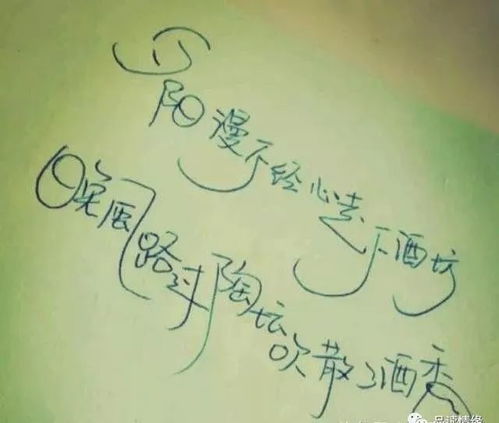 夕阳漫不经心走下酒坊
晚风路过陶坛吹散了酒香